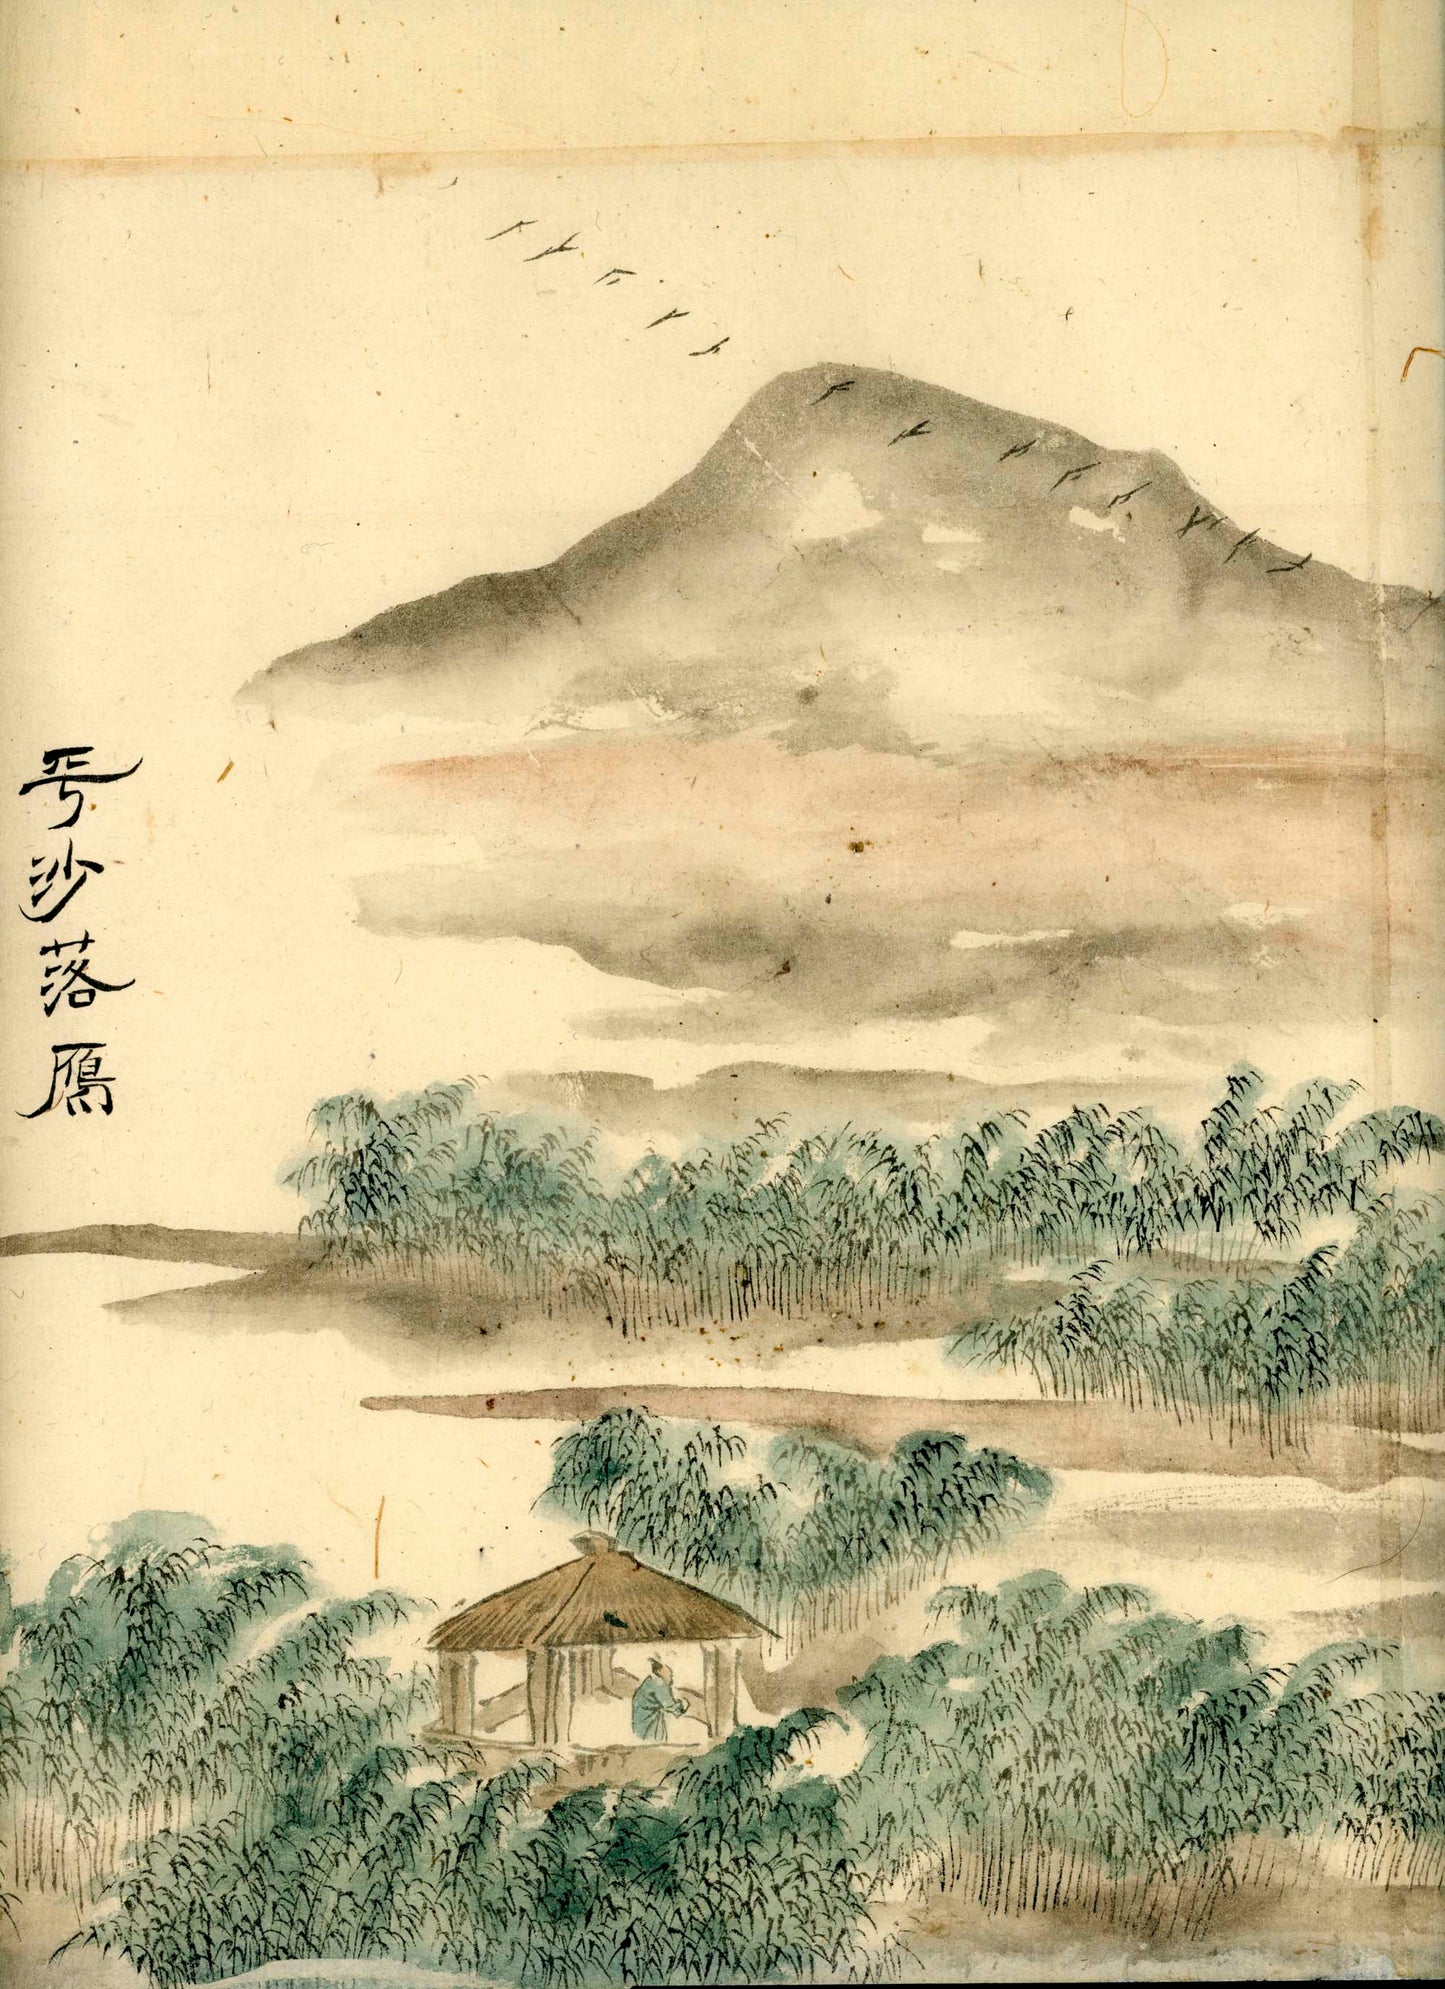 平沙落鴈